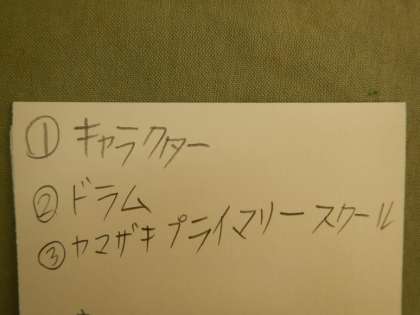 ① キャラクター
② ドラム
③ ヤマザキ プライマリー スクール